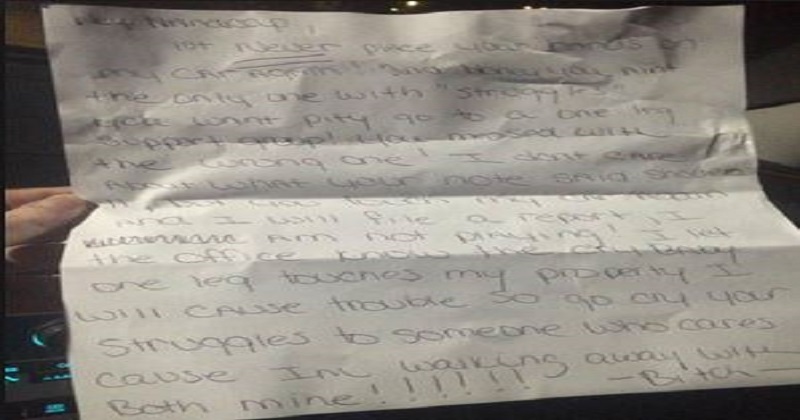 Hey Handicap,
1st Never place your hands on
my car again! 2nd honey you aint
the only one with "struggles"
You want pity go to a one leg
support group! You messed with
the wrong one! I dont care
about what your note said shove
it, touch my car again
and I will file a report, I
am not playing! I let
the office know the cry baby
one leg touches my property I
will cause trouble so go cry your
struggles to someone who cares
cause Im walking away with
Both mine!!!!!!! -Bitch-